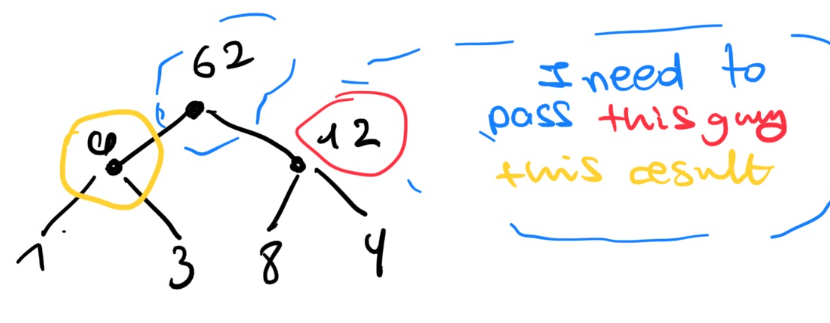 62
12
1 3 8 4
I need to
pass this guy
this result